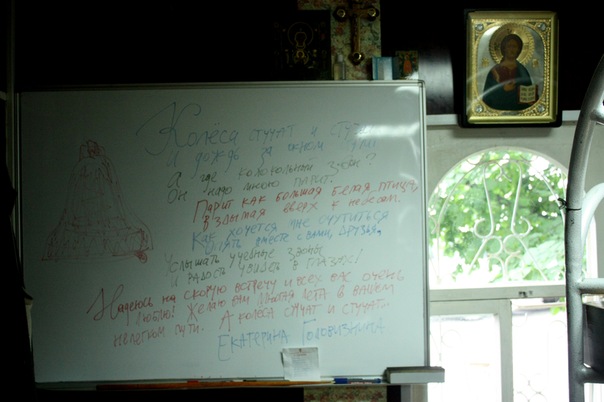 Колёса стучат и стуч
И дождь за окном
А где колокольный звон?
Он надо мною парит.
Парит как большая белая птица,
взлымая вверх к небесам.
Как хочется мне очутиться
опять вместе с вами, друзья,
Услышать учебные звоны
и радость увидеть в глазах!
Надеюсь на скорую встречу и всех вас очень
люблю! Желаю вам многая лета в вашем
нелегком пути. А колёса стучат и стучат.
Екатерина Головизнина